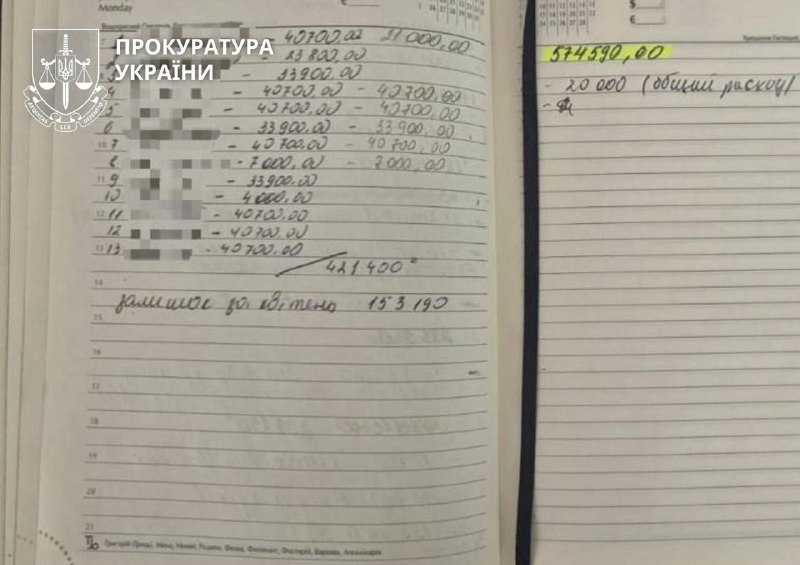 Monday
ПРОКУРАТУРА
УКРАЇНИ
- 40700,00 21000,00
- 23800,00
- 33900.00
4 - 40700,00 - 40700,00
5 - 40700,00 - 40700,00
6 - 33900,00 - 33900,00
7 - 40700,00 - 40700,00
8 - 7000,00 - 7000,00
9 - 33900.00
10 - 4000,00
11 - 40700,00
12 - 40700.00
13 - 40700.00
421400
залишок за квітень 153190
574590,00
- 20000 (общий расход)
14
15
16
17
18
19
20
21